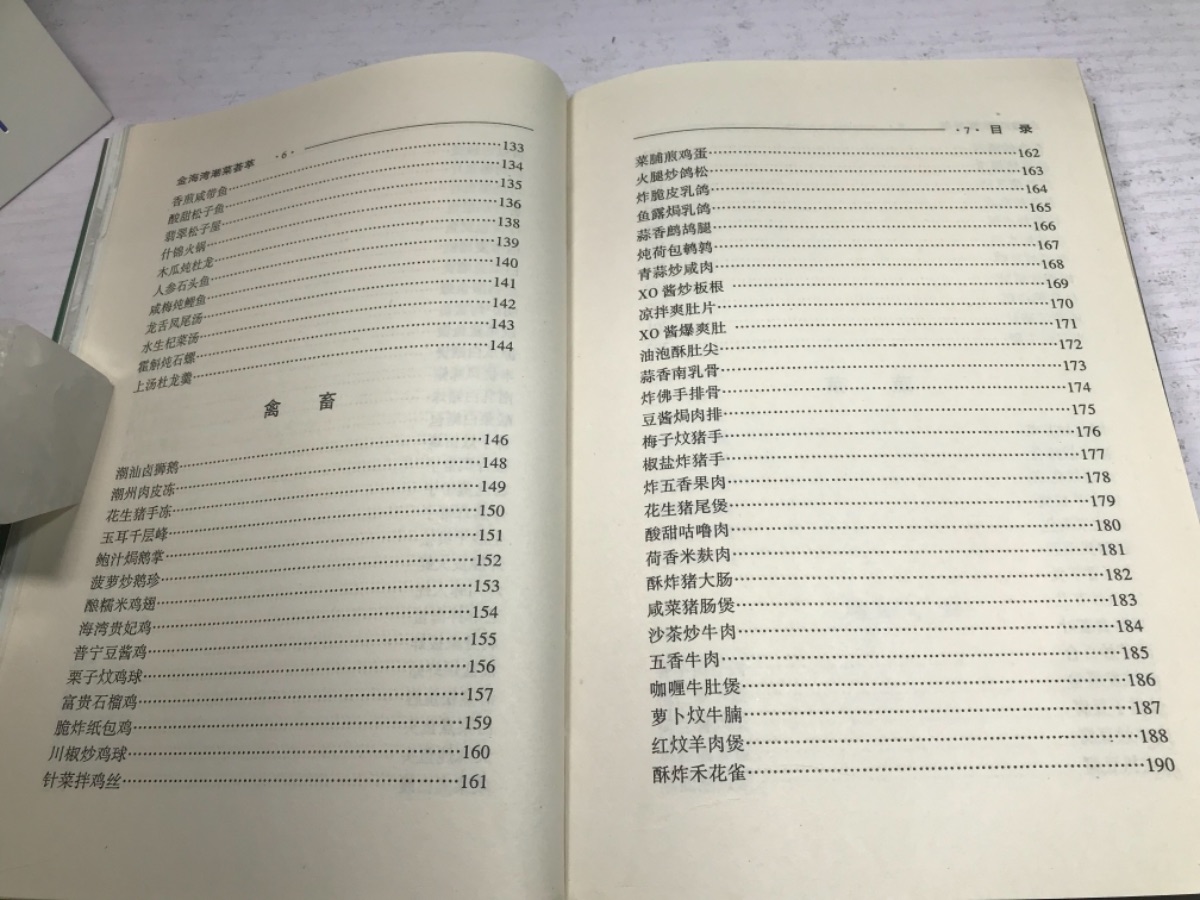 金海湾潮菜荟萃 ·6·
香煎咸带鱼……133
酸甜松子鱼……134
翡翠松子屋……135
什锦火锅……136
木瓜炖杜龙……138
人参石头鱼……139
咸梅炖鲤鱼……140
龙舌凤尾汤……141
水生杞菜汤……142
霍斛炖石螺……143
上汤杜龙羹……144
禽 畜
潮汕卤狮鹅……146
潮州肉皮冻……148
花生猪手冻……149
玉耳千层峰……150
鲍汁焗鹅掌……151
菠萝炒鹅珍……152
酿糯米鸡翅……153
海湾贵妃鸡……154
普宁豆酱鸡……155
栗子炆鸡球……156
富贵石榴鸡……157
脆炸纸包鸡……159
川椒炒鸡球……160
针菜拌鸡丝……161
·7· 目 录
菜脯煎鸡蛋……162
火腿炒鸽松……163
炸脆皮乳鸽……164
鱼露焗乳鸽……165
蒜香鹧鸪腿……166
炖荷包鹌鹑……167
青蒜炒咸肉……168
XO酱炒板根……169
凉拌爽肚片……170
XO酱爆爽肚……171
油泡酥肚尖……172
蒜香南乳骨……173
炸佛手排骨……174
豆酱焗肉排……175
梅子炆猪手……176
椒盐炸猪手……177
炸五香果肉……178
花生猪尾煲……179
酸甜咕噜肉……180
荷香米麸肉……181
酥炸猪大肠……182
咸菜猪肠煲……183
沙茶炒牛肉……184
五香牛肉……185
咖喱牛肚煲……186
萝卜炆牛腩……187
红炆羊肉煲……188
酥炸禾花雀……190